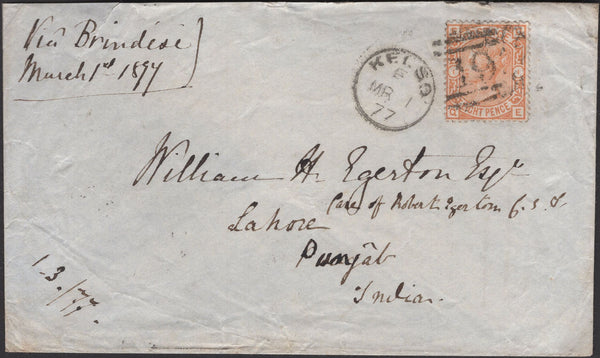 Via Brindisi
March 1st 1877
KELSO
MR 1
77
EIGHT PENCE
E
William H. Egerton Esqr
Care of Robert Egerton C.S.I.
Lahore
Punjâb
India.
1-3-/77.